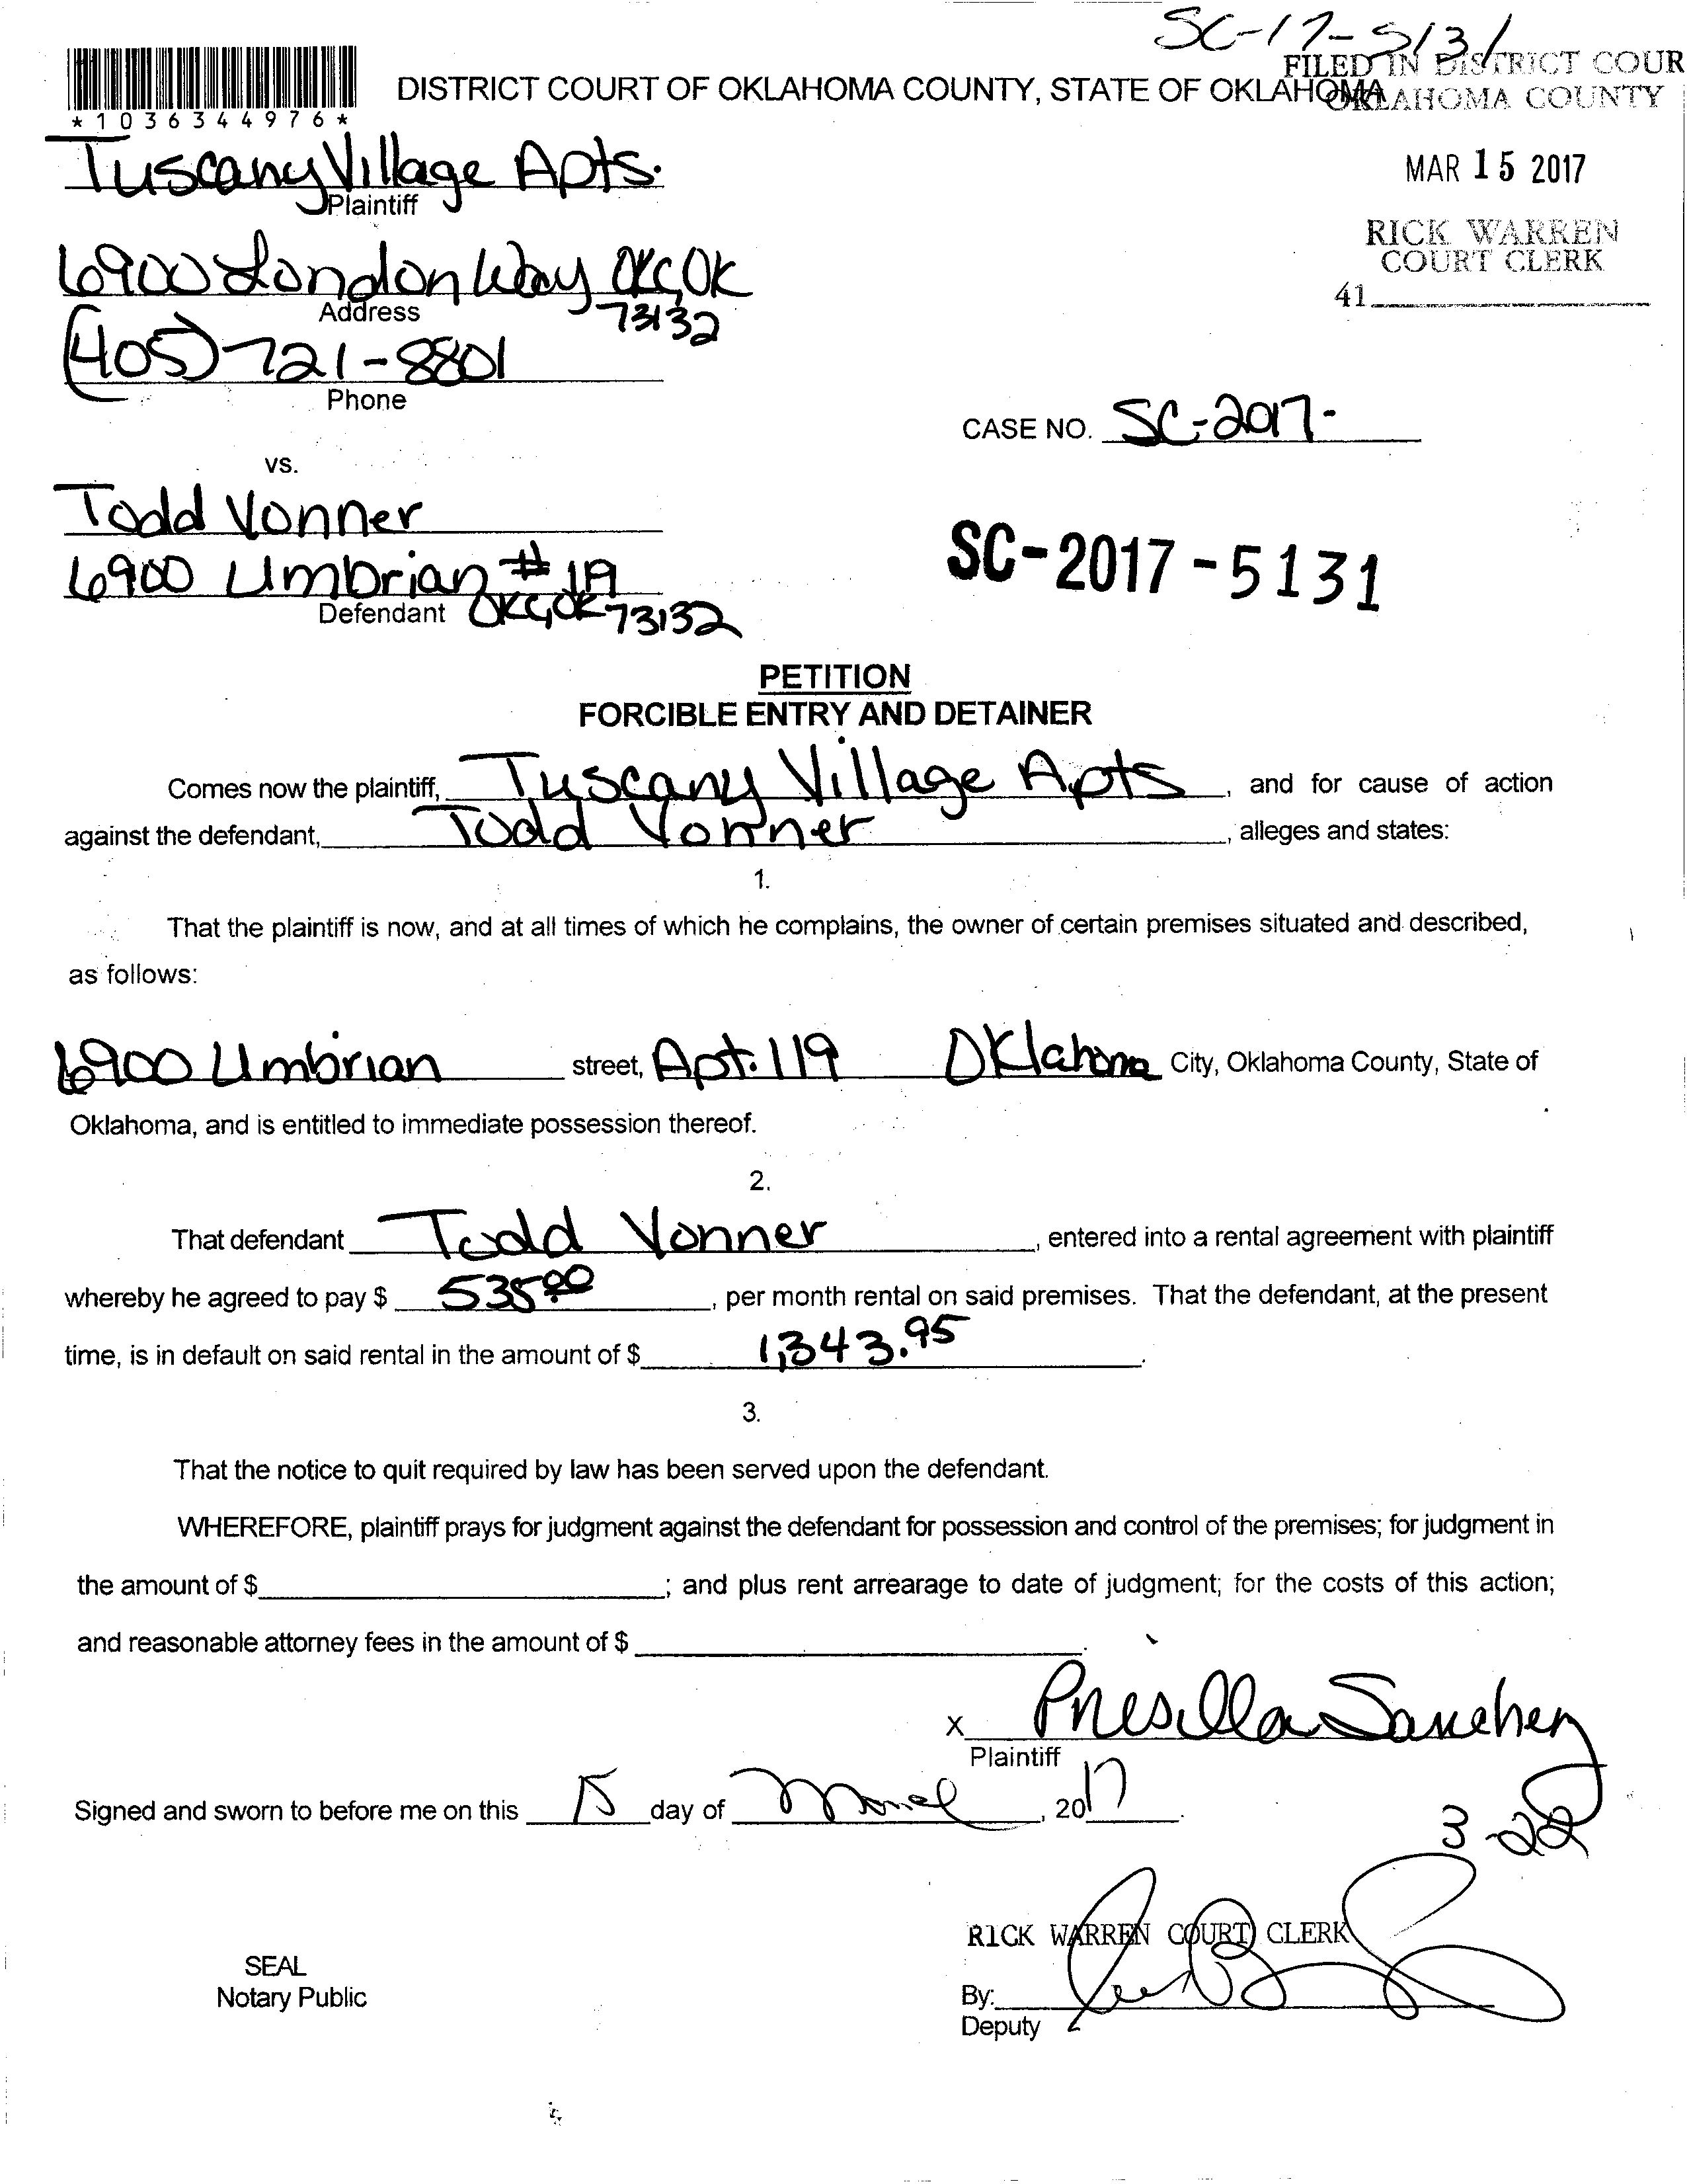 SC-17-5131
FILED IN DISTRICT COUR
DISTRICT COURT OF OKLAHOMA COUNTY, STATE OF OKLAHOMA
OKLAHOMA COUNTY
*1036344976*
Tuscany Village Apts.
Plaintiff
MAR 15 2017
RICK WARREN
COURT CLERK
41
6900 London Way OKC, OK
73132
Address
(405) 721-8801
Phone
CASE NO. SC-2017-
vs.
Todd Vonner
SC-2017-5131
6900 Umbrian # 119
Defendant OKC, OK 73132
PETITION
FORCIBLE ENTRY AND DETAINER
Comes now the plaintiff, Tuscany Village Apts, and for cause of action
against the defendant, Todd Vonner, alleges and states:
1.
That the plaintiff is now, and at all times of which he complains, the owner of certain premises situated and described,
as follows:
6900 Umbrian street, Apt. 119 Oklahoma City, Oklahoma County, State of
Oklahoma, and is entitled to immediate possession thereof.
2.
That defendant Todd Vonner, entered into a rental agreement with plaintiff
whereby he agreed to pay $ 535.00, per month rental on said premises. That the defendant, at the present
time, is in default on said rental in the amount of $ 1,343.95.
3.
That the notice to quit required by law has been served upon the defendant.
WHEREFORE, plaintiff prays for judgment against the defendant for possession and control of the premises; for judgment in
the amount of $ ; and plus rent arrearage to date of judgment; for the costs of this action;
and reasonable attorney fees in the amount of $ .
X Prisilla Sanchez
Plaintiff
Signed and sworn to before me on this 15 day of March, 2017.
3-22
RICK WARREN COURT CLERK
SEAL
Notary Public
By:
Deputy